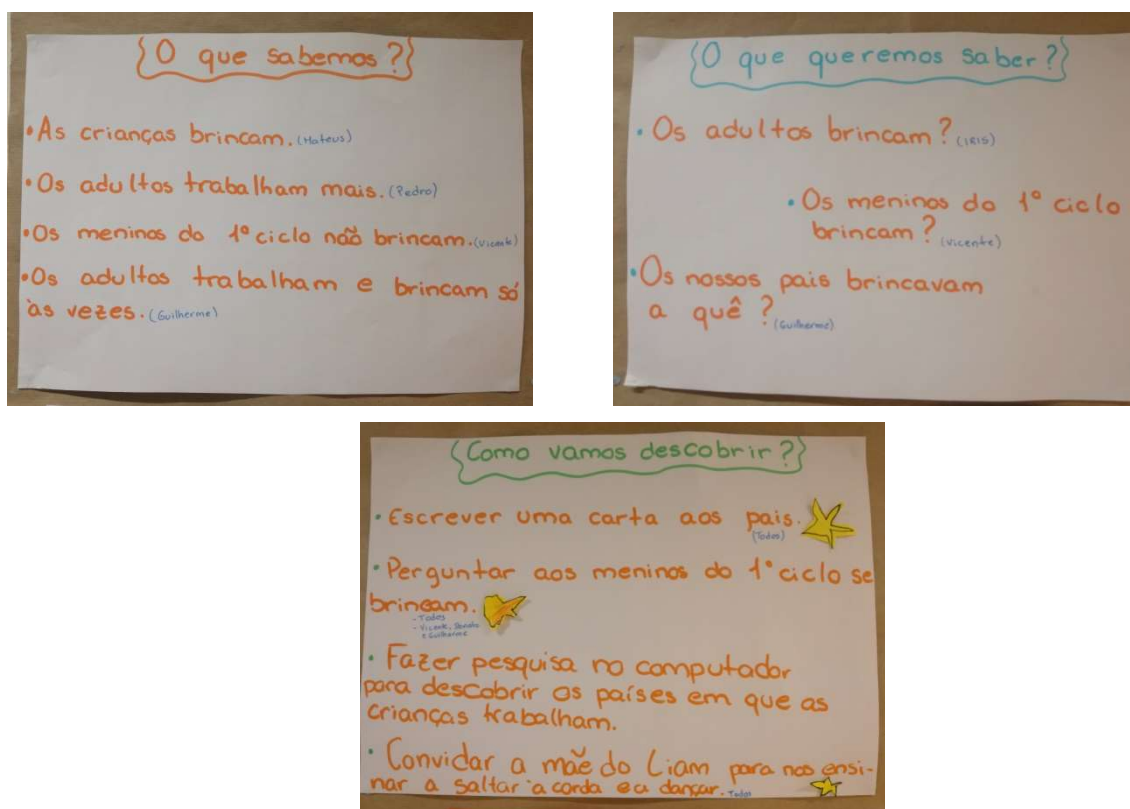 O que sabemos?
• As crianças brincam. (Mateus)
• Os adultos trabalham mais. (Pedro)
• Os meninos do 1º ciclo não brincam. (Vicente)
• Os adultos trabalham e brincam só
às vezes. (Guilherme)
O que queremos saber?
• Os adultos brincam? (IRIS)
• Os meninos do 1º ciclo
brincam? (Vicente)
• Os nossos pais brincavam
a quê? (Guilherme)
Como vamos descobrir?
• Escrever uma carta aos pais.
(Todos)
• Perguntar aos meninos do 1º ciclo se
brincam.
- Todos
- Vicente,
e Guilherme
• Fazer pesquisa no computador
para descobrir os países em que as
crianças trabalham.
• Convidar a mãe do Liam para nos ensi-
nar a saltar à corda e a dançar. Todos